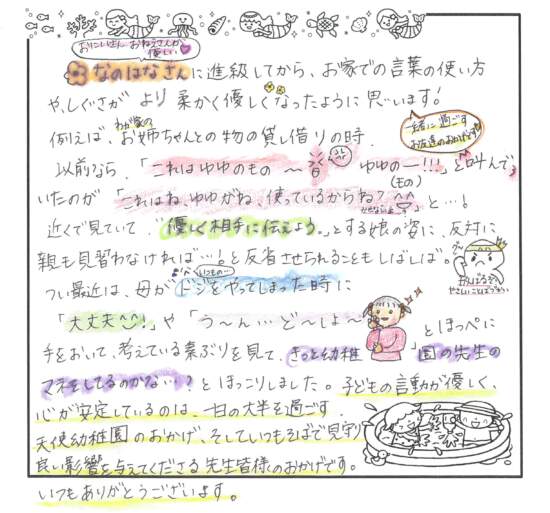 おにいさん、おねえさんが
優しい
なのはなさんに進級してから、お家での言葉の使い方
や、しぐさが より 柔かく優しくなったように思います!
わが家の
例えば、お姉ちゃんとの物の貸し借りの時
一緒に過ごす
お友達のおかげです
以前なら、「これはゆゆのもの〜 ゆゆのー!!!」と叫んで
いたのが「これはね、ゆゆがね、使っているからね?
(もの)
」と…!
近くで見ていて、"優しく相手に伝えよう。"とする娘の姿に、反対に
親も見習わなければ…。と反省させられることもしばしば。
つい最近は、母が
いつもの…
ドジをやってしまった時に
「大丈夫^^!」や「う〜ん…ど〜しよ〜
」とほっぺに
手をおいて、考えている素ぶりを見て、きっと幼稚園の先生の
マネをしてるのかな…!?とほっこりしました。子どもの言動が優しく、
心が安定しているのは、一日の大半を過ごす
天使幼稚園のおかげ、そしていつもそばで見守り
良い影響を与えてくださる先生皆様のおかげです。
いつもありがとうございます。